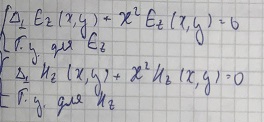 Δ⊥ Ez (x,y) + ϰ² Ez (x,y) = 0
Г.у. для Ez
Δ⊥ Hz (x,y) + ϰ² Hz (x,y) = 0
Г.у. для Hz